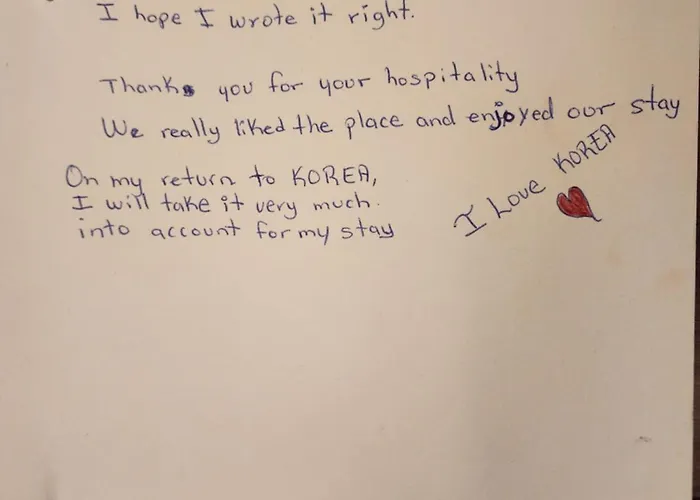 I hope I wrote it right.
Thanks you for your hospitality
We really liked the place and enjoyed our stay
On my return to KOREA,
I will take it very much.
into account for my stay
I Love KOREA